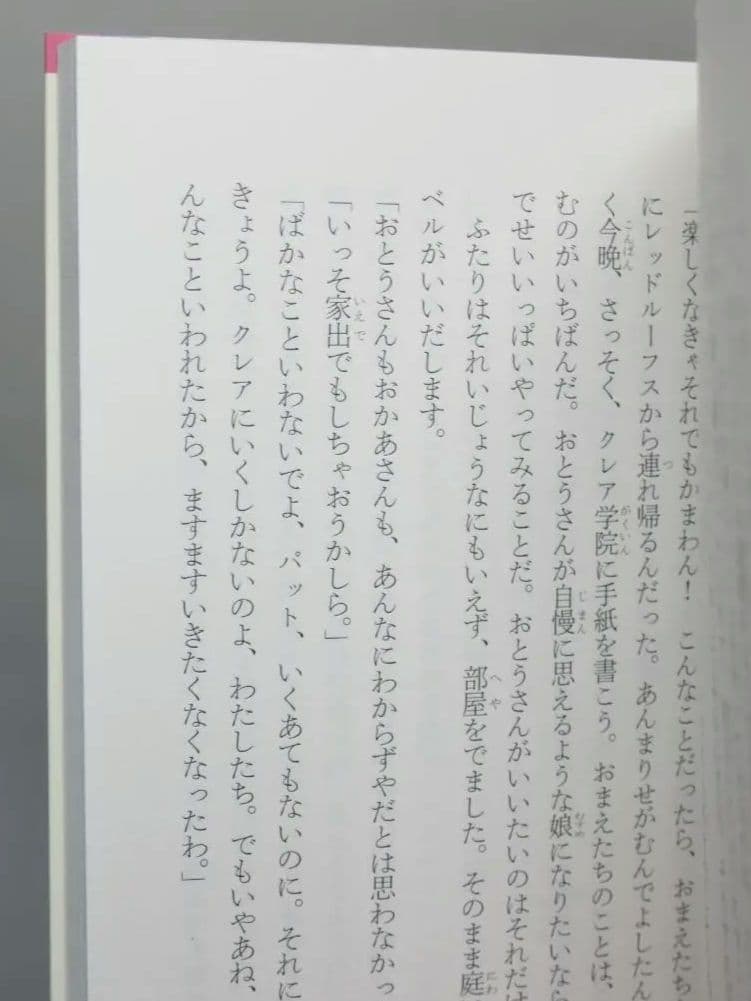 「楽しくなきゃそれでもかまわん！　こんなことだったら、おまえたち
にレッドルーフスから連れ帰るんだった。あんまりせがむんでよしたん
く今晩、さっそく、クレア学院に手紙を書こう。おまえたちのことは、
むのがいちばんだ。おとうさんが自慢に思えるような娘になりたいなら
でせいいっぱいやってみることだ。おとうさんがいいたいのはそれだけ
　ふたりはそれいじょうなにもいえず、部屋をでました。そのまま庭
ベルがいいだします。
「おとうさんもおかあさんも、あんなにわからずやだとは思わなかっ
「いっそ家出でもしちゃおうかしら。」
「ばかなこといわないでよ、パット、いくあてもないのに。それに
きょうよ。クレアにいくしかないのよ、わたしたち。でもいやあね、
んなこといわれたから、ますますいきたくなくなったわ。」